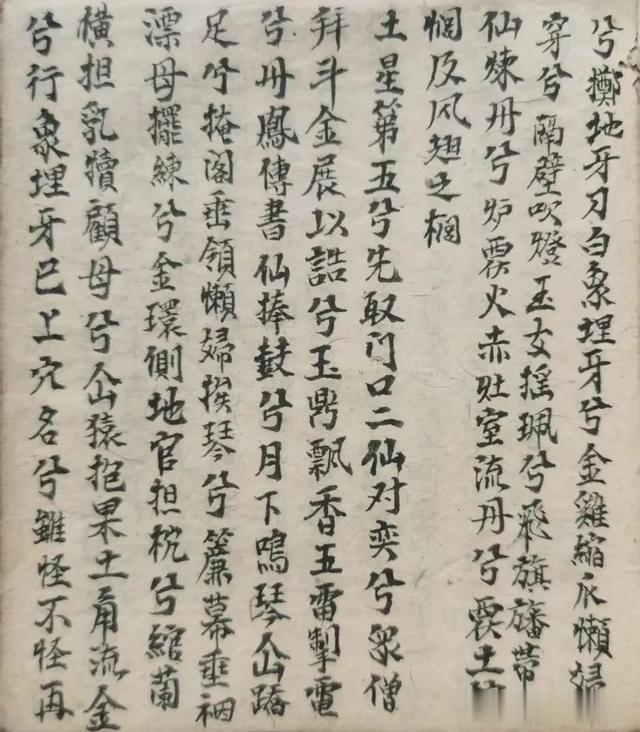 兮擲地牙刀白象埋牙兮金雞縮爪懶婦
穿兮隔壁吹燈玉女搖珮兮飛旗旛帶
仙煉丹兮炉霞火赤壯室流丹兮霞土
悃反风翅之榈
土星第五兮先取门口二仙对奕兮眾僧
拜斗金展以誥兮玉鼎飘香五雷掣電
兮丹鳳傳書仙捧鼓兮月下鳴琴仚蹻
足兮掩阁垂領懶婦挨琴兮簾幕垂裀
漂母擺練兮金環側地官担枕兮綰蘭
橫担乳犢顧母兮仚猿抱果土角流金
兮行象埋牙已上穴名兮雖怪不怪再